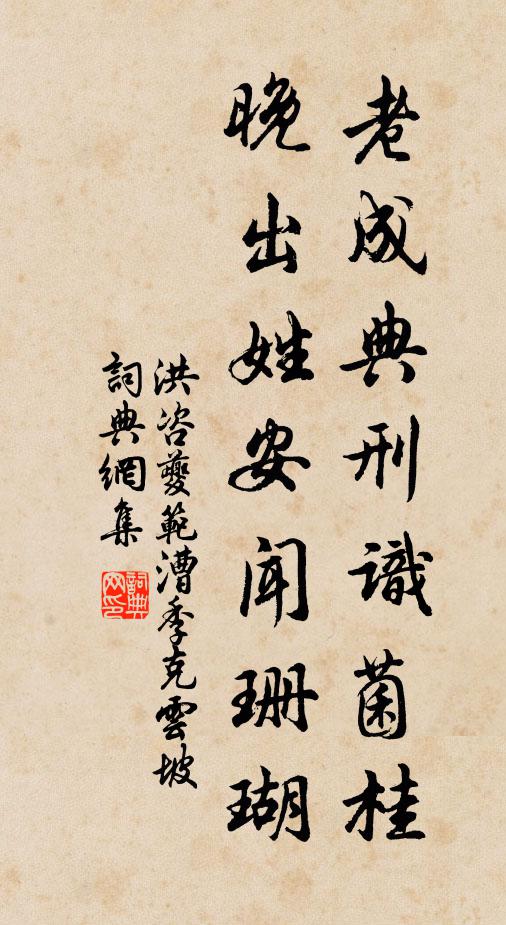 老成典刑識菌桂
晚出姓安聞珊瑚
洪咨夔範漕季克雲坡
詞典網集
詞典网印